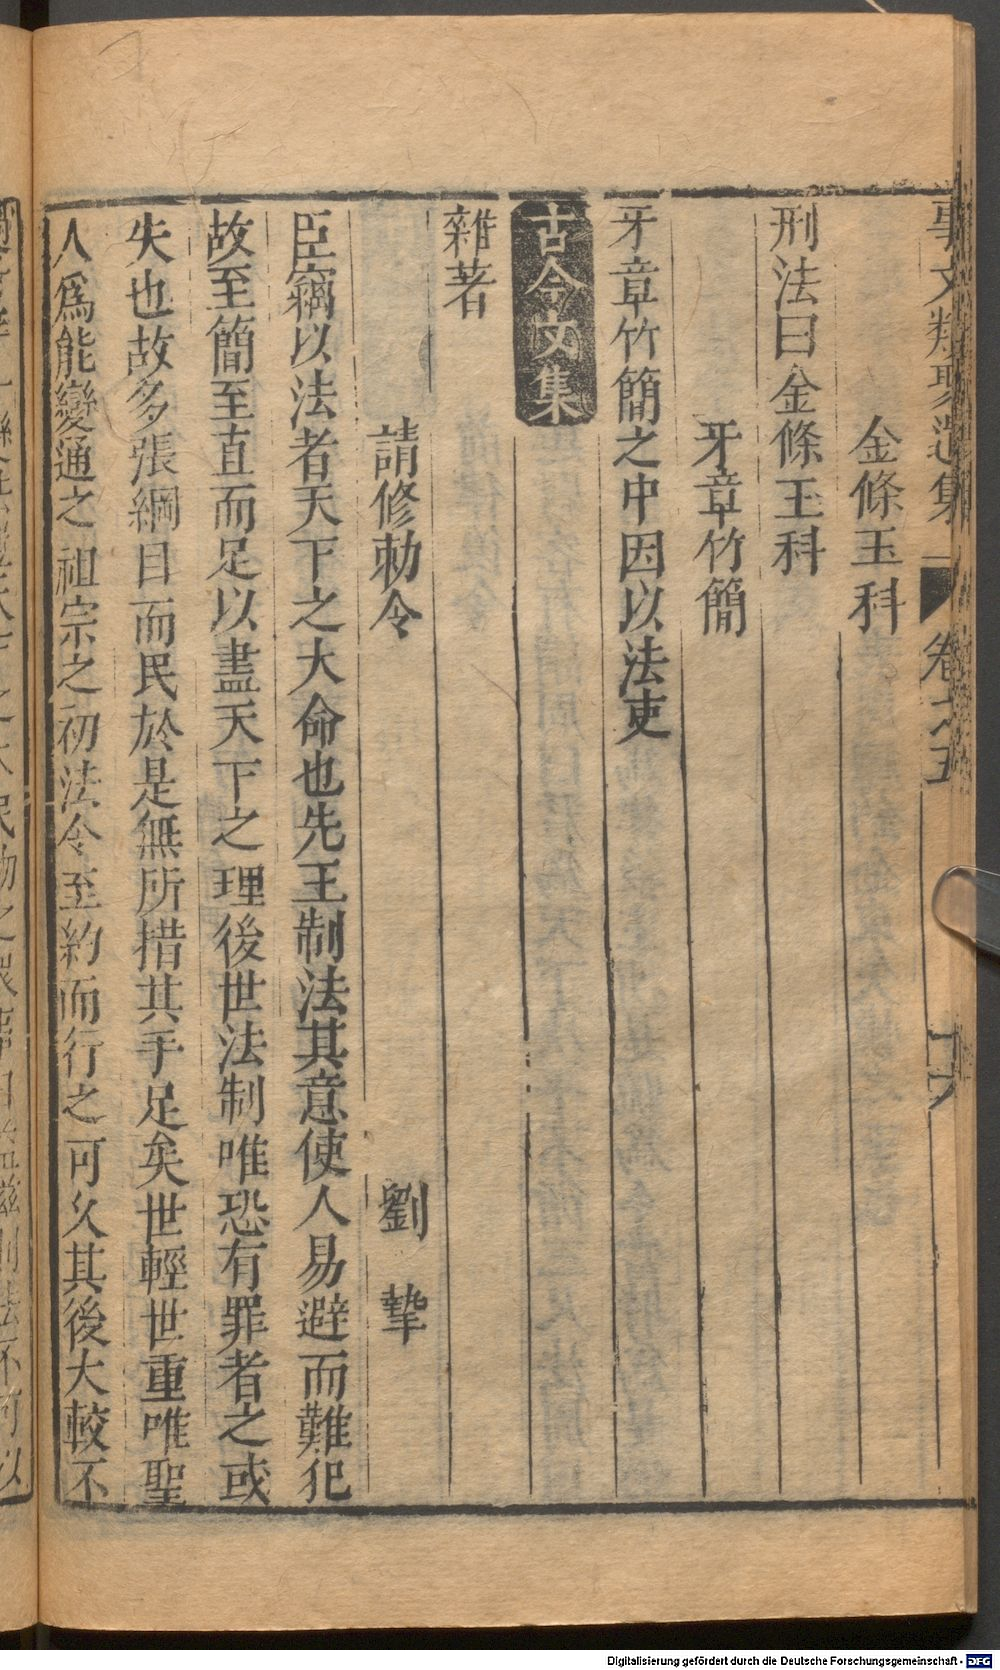 事文類聚遺集 卷之五 十六
金條玉科
刑法曰金條玉科
牙章竹簡
牙章竹簡之中因以法吏
古今文集
雜著
請修勅令 劉摯
臣竊以法者天下之大命也先王制法其意使人易避而難犯
故至簡至直而足以盡天下之理後世法制唯恐有罪者之或
失也故多張綱目而民於是無所措其手足矣世輕世重唯聖
人爲能變通之祖宗之初法令至約而行之可久其後大較不
Digitalisierung gefördert durch die Deutsche Forschungsgemeinschaft - DFG